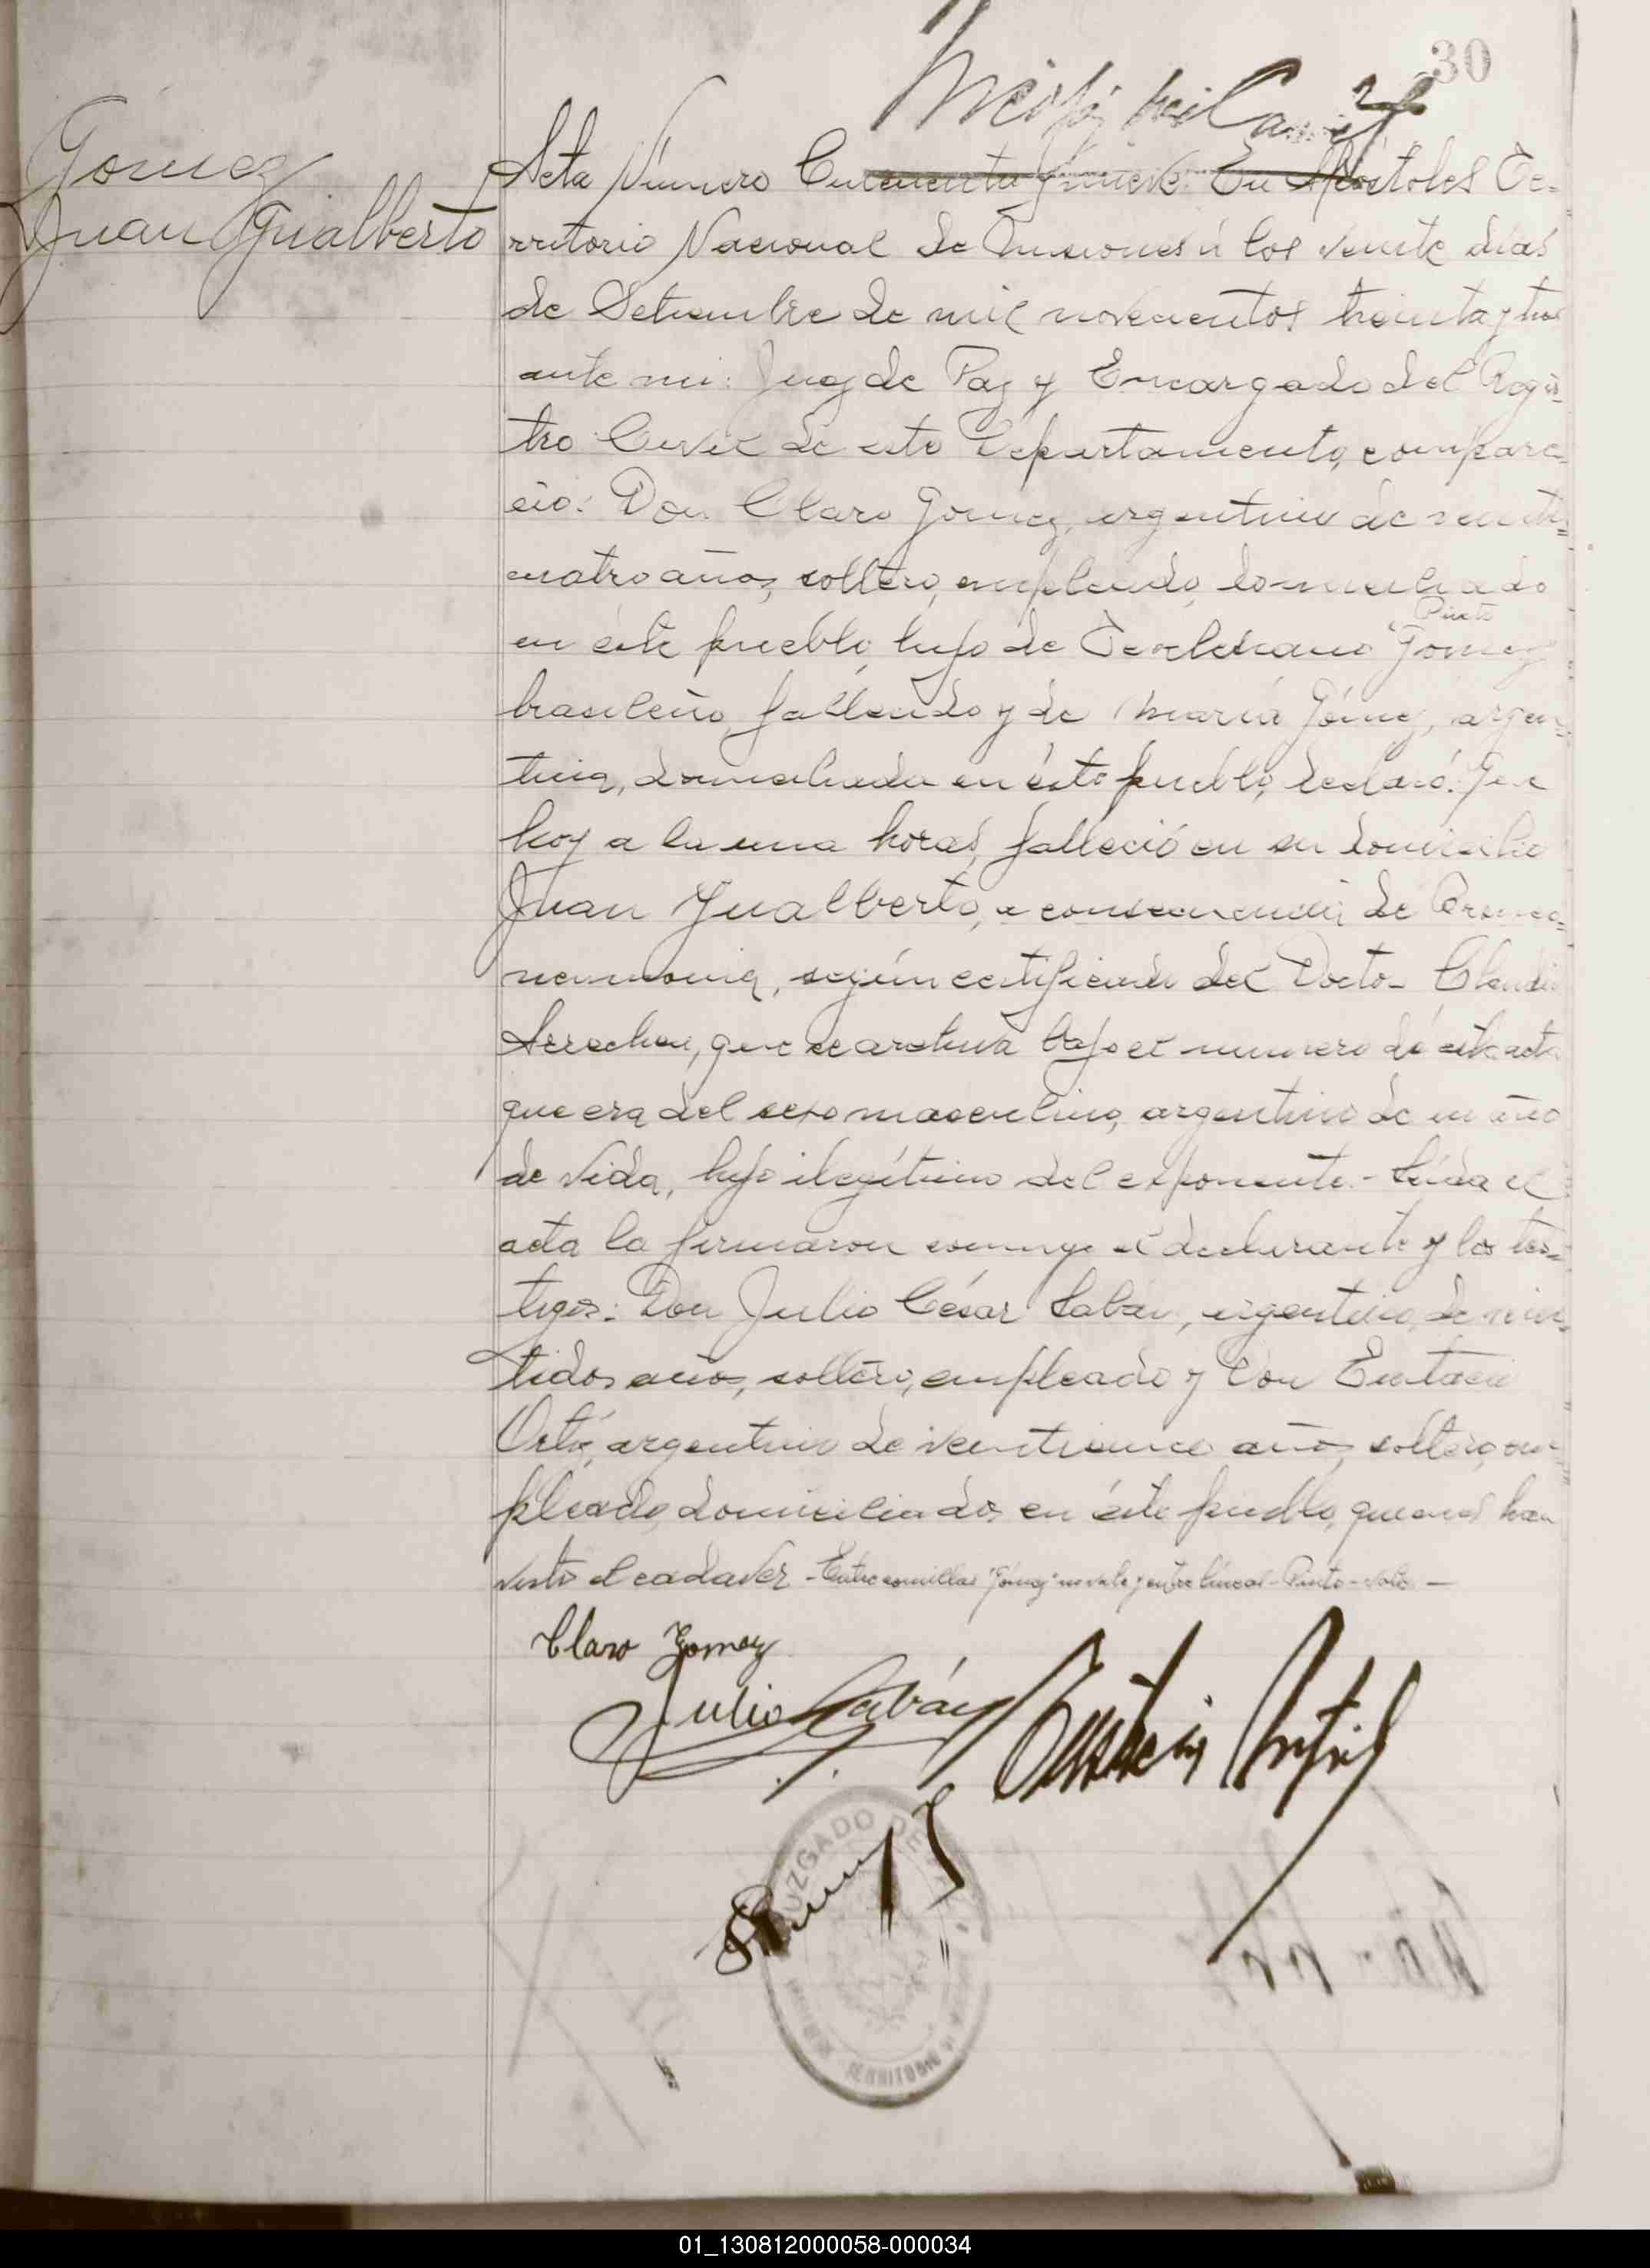 30
Gomez
Juan Gualberto
Acta Número Cincuenta y nueve. En Apóstoles Te-
rritorio Nacional de Misiones á los veinte dias
de Setiembre de mil novecientos treinta y tres
ante mi: Juez de Paz y Encargado del Regis-
tro Civil de este Departamento, compare-
ció: Don Claro Gomez, argentino de veinti-
cuatro años, soltero, empleado, domiciliado
Pinto
en éste pueblo, hijo de "Gomez
brasileño, fallecido y de Maria Gómez, argen-
tina, domiciliada en éste pueblo, declaró: Que
hoy a la una horas, falleció en su domicilio
Juan Gualberto, a consecuencia de Bronco-
neumonia, según certificado del Doctor Claudio
Arrechea, que se archiva bajo el numero de esta acta
que era del sexo masculino, argentino de un año
de vida, hijo ilegítimo del exponente.- Leída el
acta la firmaron conmigo el declarante y los tes-
tigos: Don Julio César Labán, argentino, de vein-
tidos años, soltero, empleado y Don Eustacio
argentino de veinticinco años, soltero, em-
pleado, domiciliados en éste pueblo, quienes han
visto el cadaver - Entre comillas "Gómez" no vale y entre líneas - Pinto - vale. -
Claro Gomez
Julio Labán
Eustacio
JUZGADO DE
TERRITORIO
01_130812000058-000034